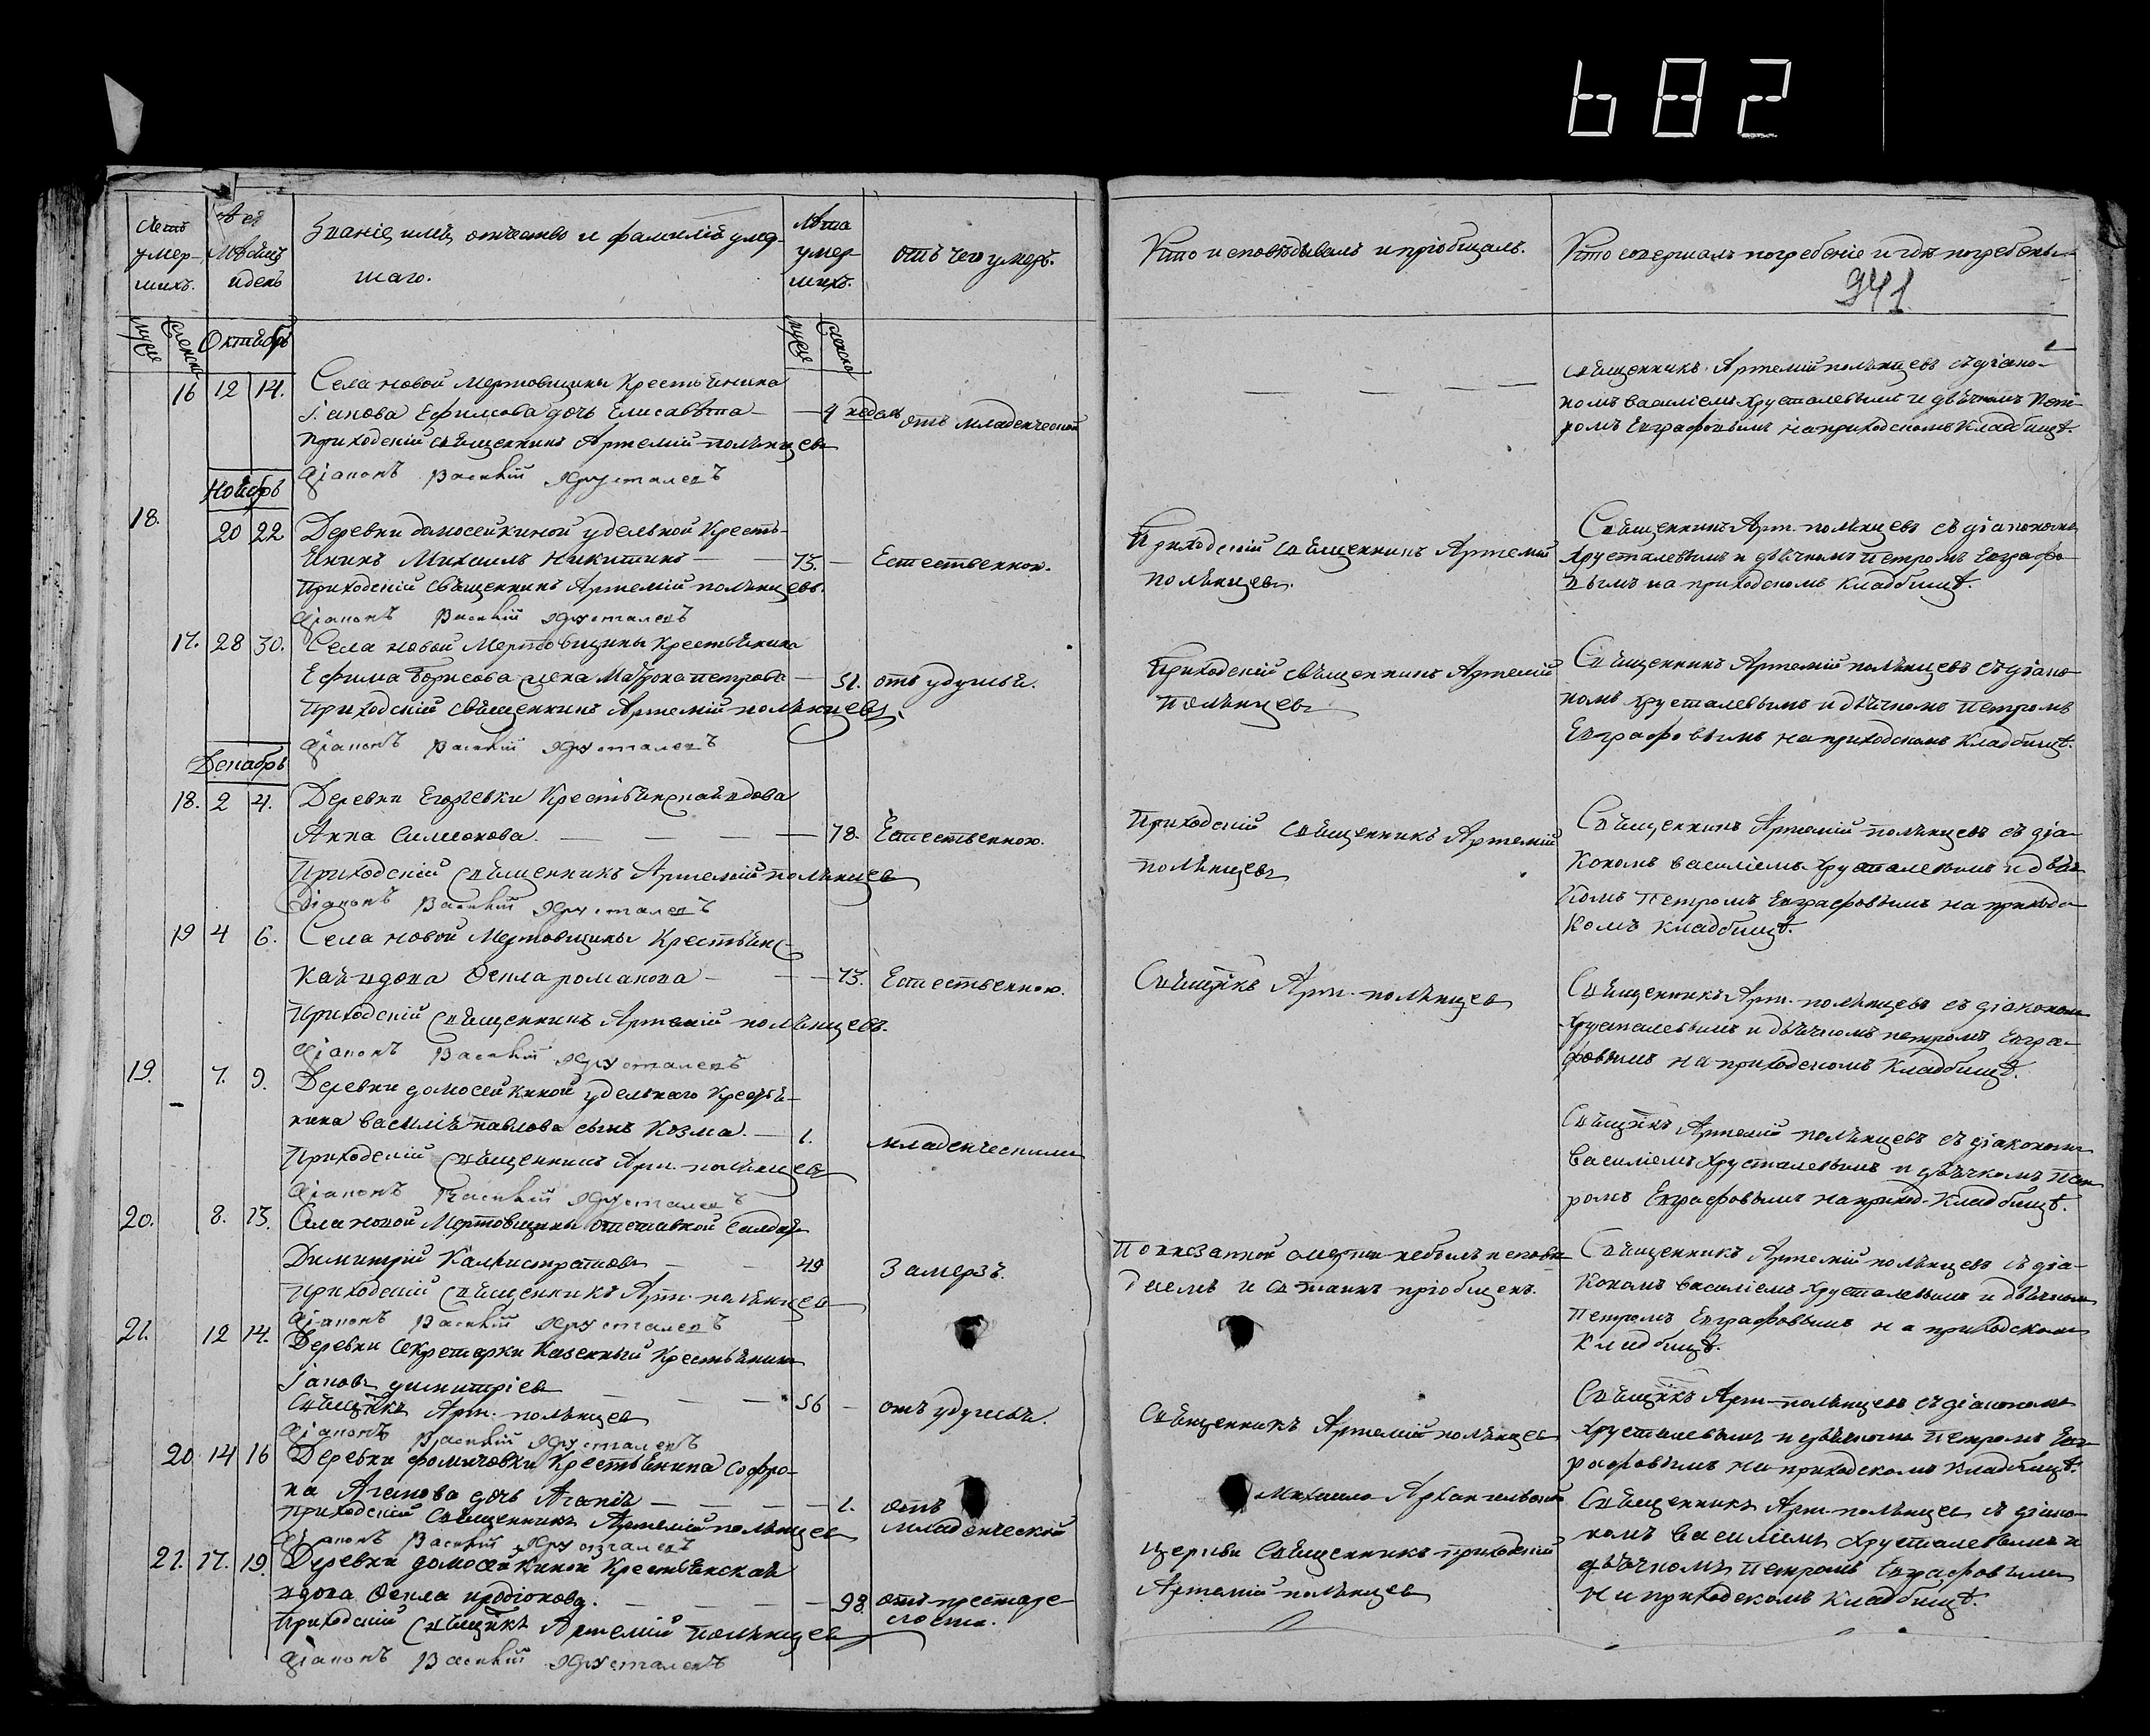 682
Счетъ умер-шихъ.
Мѣсяцъ и день
Званіе имя, отчество и фамилія умер-
шаго.
Лѣта умер-шихъ.
отъ чего умеръ.
Кто исповѣдывалъ и пріобщалъ.
Кто совершалъ погребеніе и гдѣ погребены
941
муже женска
Октябрь
муже женска
16 12 14. Села новой Мертовщины Крестьянина
Іакова Ефимова дочь Елисавѣта — 4 недель отъ младенческой
Приходскій священникъ Артемій полянцевъ
Діаконъ Василій Хрусталевъ
Священникъ Артемій полянцевъ съ діако-
номъ василіемъ Хрусталевымъ и дьячкомъ Пет-
ромъ Евграфовымъ на приходскомъ Кладбищѣ.
Ноябрь
18. 20 22 Деревни домосейкиной удельной Кресть-
янинъ Михаилъ Никитинъ — 73. — Естественною.
Приходскій священникъ Артемій полянцевъ.
Діаконъ Василій Хрусталевъ
Приходскій священникъ Артемій
полянцевъ.
Священникъ Арт. полянцевъ съ діакономъ
Хрусталевымъ и дьячкомъ Петромъ Евграфо-
вымъ на приходскомъ Кладбищѣ.
17. 28 30. Села новой Мертовщины Крестьянина
Ефима Борисова жена Матрона петрова — 51. отъ удушья.
Приходскій священникъ Артемій полянцевъ.
Діаконъ Василій Хрусталевъ
Приходскій священникъ Артемій
Полянцевъ
Священникъ Артемій полянцевъ съ діако-
номъ Хрусталевымъ и дьячкомъ Петромъ
Евграфовымъ на приходскомъ Кладбищѣ.
Декабрь
18. 2 4. Деревни Егорьевки Крестьянская вдова
Анна Симеонова. — — — — 78. Естественною.
Приходскій Священникъ Артемій полянцевъ
Діаконъ Василій Хрусталевъ
Приходскій Священникъ Артемій
полянцевъ
Священникъ Артемій полянцевъ съ діа-
кономъ василіемъ Хрусталевымъ и дьяч-
комъ Петромъ Евграфовымъ на приходс-
комъ кладбищѣ.
19 4 6. Села новой Мертовщины Крестьянс-
кая вдова Фекла романова — — — 73. Естественною.
Приходскій Священникъ Артемій полянцевъ.
Діаконъ Василій Хрусталевъ
Священикъ Арт. полянцевъ
Священникъ Арт. полянцевъ съ діакономъ
Хрусталевымъ и дьячкомъ петромъ Евгра-
фовымъ на приходскомъ Кладбищѣ.
19. 7. 9. Деревни домосейкиной удельнаго Крестья-
нина василія павлова сынъ Козма. — 1. младенческими
Приходскій Священникъ Арт. полянцевъ
Діаконъ Василій Хрусталевъ
Священикъ Артемій полянцевъ съ діакономъ
Василіемъ Хрусталевымъ и дьячкомъ Пет-
ромъ Евграфовымъ на приход. Кладбищѣ.
20. 8. 13. Села новой Мертовщины отставной солдатъ
Димитрій Каллистратовъ — — 49 Замерзъ.
Приходскій Священникъ Арт. полянцевъ
Діаконъ Василій Хрусталевъ
По внезапной смерти небылъ исповѣ-
дуемъ и св таинъ пріобщенъ.
Священникъ Артемій полянцевъ съ діа-
кономъ василіемъ Хрусталевымъ и дьячкомъ
Петромъ Евграфовымъ на приходскомъ
Кладбищѣ.
21. 12 14. Деревни Секретарки Казенный Крестьянинъ
Іаковъ димитріевъ — — — 56 — отъ удушья.
Священикъ Арт. полянцевъ
Діаконъ Василій Хрусталевъ
Священникъ Артемій полянцевъ
Священикъ Арт. полянцевъ съ діакономъ
Хрусталевымъ и дьячкомъ Петромъ Евг-
рафовымъ на приходскомъ Кладбищѣ.
20 14 16 Деревни фомичовки Крестьянина Софро-
на Агапова дочь Агапія — — — 1. отъ
младенческой
Приходскій Священникъ Артемій полянцевъ
Діаконъ Василій Хрусталевъ
Михаило Архангельской
церкви Священникъ приходскій
Артемій полянцевъ
Священникъ Арт. полянцевъ съ діако-
номъ василіемъ Хрусталевымъ и
дьячкомъ Петромъ Евграфовымъ
на приходскомъ Кладбищѣ.
21. 17. 19. Деревни домосейкиной Крестьянская
вдова Фекла иродіонова. — — — 98. отъ престаре-
лости.
Приходскій Священикъ Артемій Полянцевъ
Діаконъ Василій Хрусталевъ